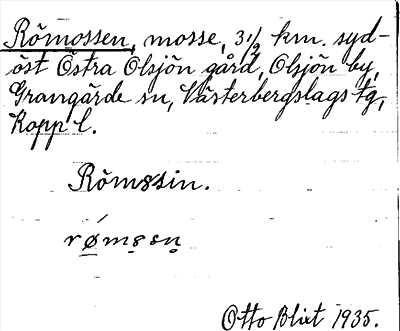 Römossen, mosse, 3 1/2 km. syd-
öst Östra Olsjön gård, Olsjön by,
Grangärde sn, Västerbergslags tg,
Kopp l.
Römssin.
rømssn̥
Otto Blixt 1935.